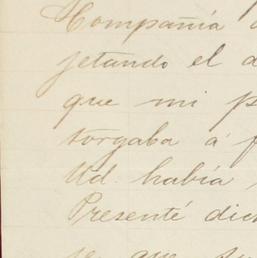 Compañía
jetando el
que mi
torgaba á
Ud. había
Presenté dic
que